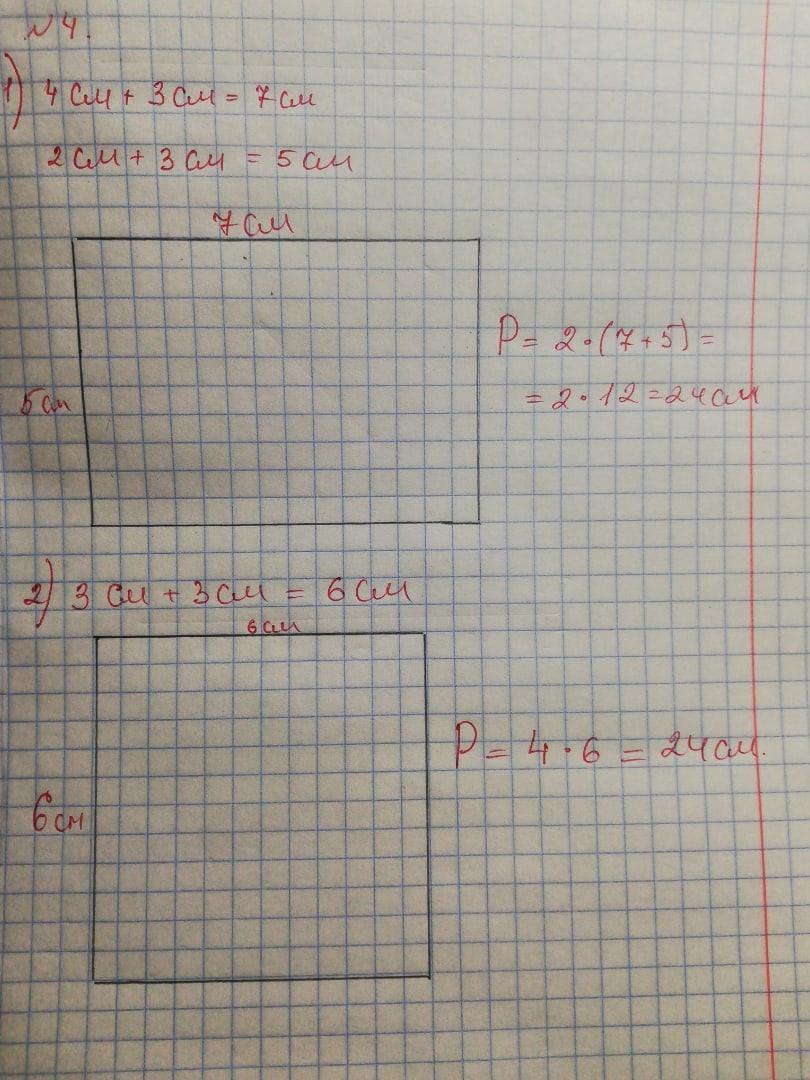 № 4.
1) 4 см + 3 см = 7 см
2 см + 3 см = 5 см
7 см
P = 2 · (7 + 5) =
= 2 · 12 = 24 см
5 см
2) 3 см + 3 см = 6 см
6 см
P = 4 · 6 = 24 см.
6 см